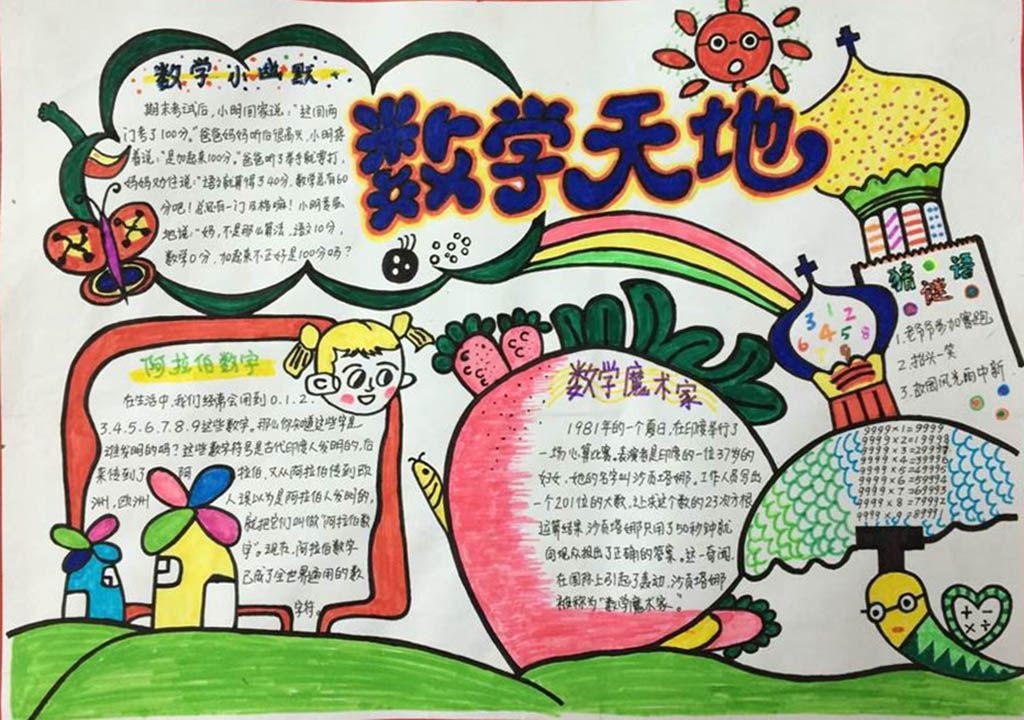 数学天地
数学小幽默
期末考试后，小明回家说："这回两
门考了100分。"爸爸妈妈听后很高兴，小明接
着说："是加起来100分。"爸爸听了举手就要打，
妈妈劝住说："语文就算得了40分，数学总有60
分吧！总还有一门及格嘛！小明委屈
地说："妈，不是那么算法，语文10分，
数学0分，加起来不正好是100分吗？
阿拉伯数字
在生活中，我们经常会用到0.1.2.
3.4.5.6.7.8.9这些数字。那么你知道这些字是
谁发明的吗？这些数字符号是古代印度人发明的，后
来传到了阿拉伯，又从阿拉伯传到欧
洲，欧洲人误以为是阿拉伯人发明的，
就把它们叫做"阿拉伯数
字"。现在，阿拉伯数字
已成了全世界通用的数
字符。
数学魔术家
1981年的一个夏日，在印度举行了
一场心算比赛。表演者是印度的一位37岁的
妇女，她的名字叫沙贡塔娜。工作人员写出
一个201位的大数，让求这个数的23次方根
运算结果，沙贡塔娜只用了50秒钟就
向观众报出了正确的答案。这一奇闻，
在国际上引起了轰动，沙贡塔娜
被称为"数学魔术家"。
猜谜语
1.老爷爷参加赛跑
2.抬头一笑
3.故园风光雨中新
3 1 2
6 4 5 8
9999×1=9999
9999×2=19998
9999×3=29997
9999×4=39996
9999×5=49995
9999×6=59994
9999×7=69993
9999×8=79992
9999×9=89991
+ −
× ÷